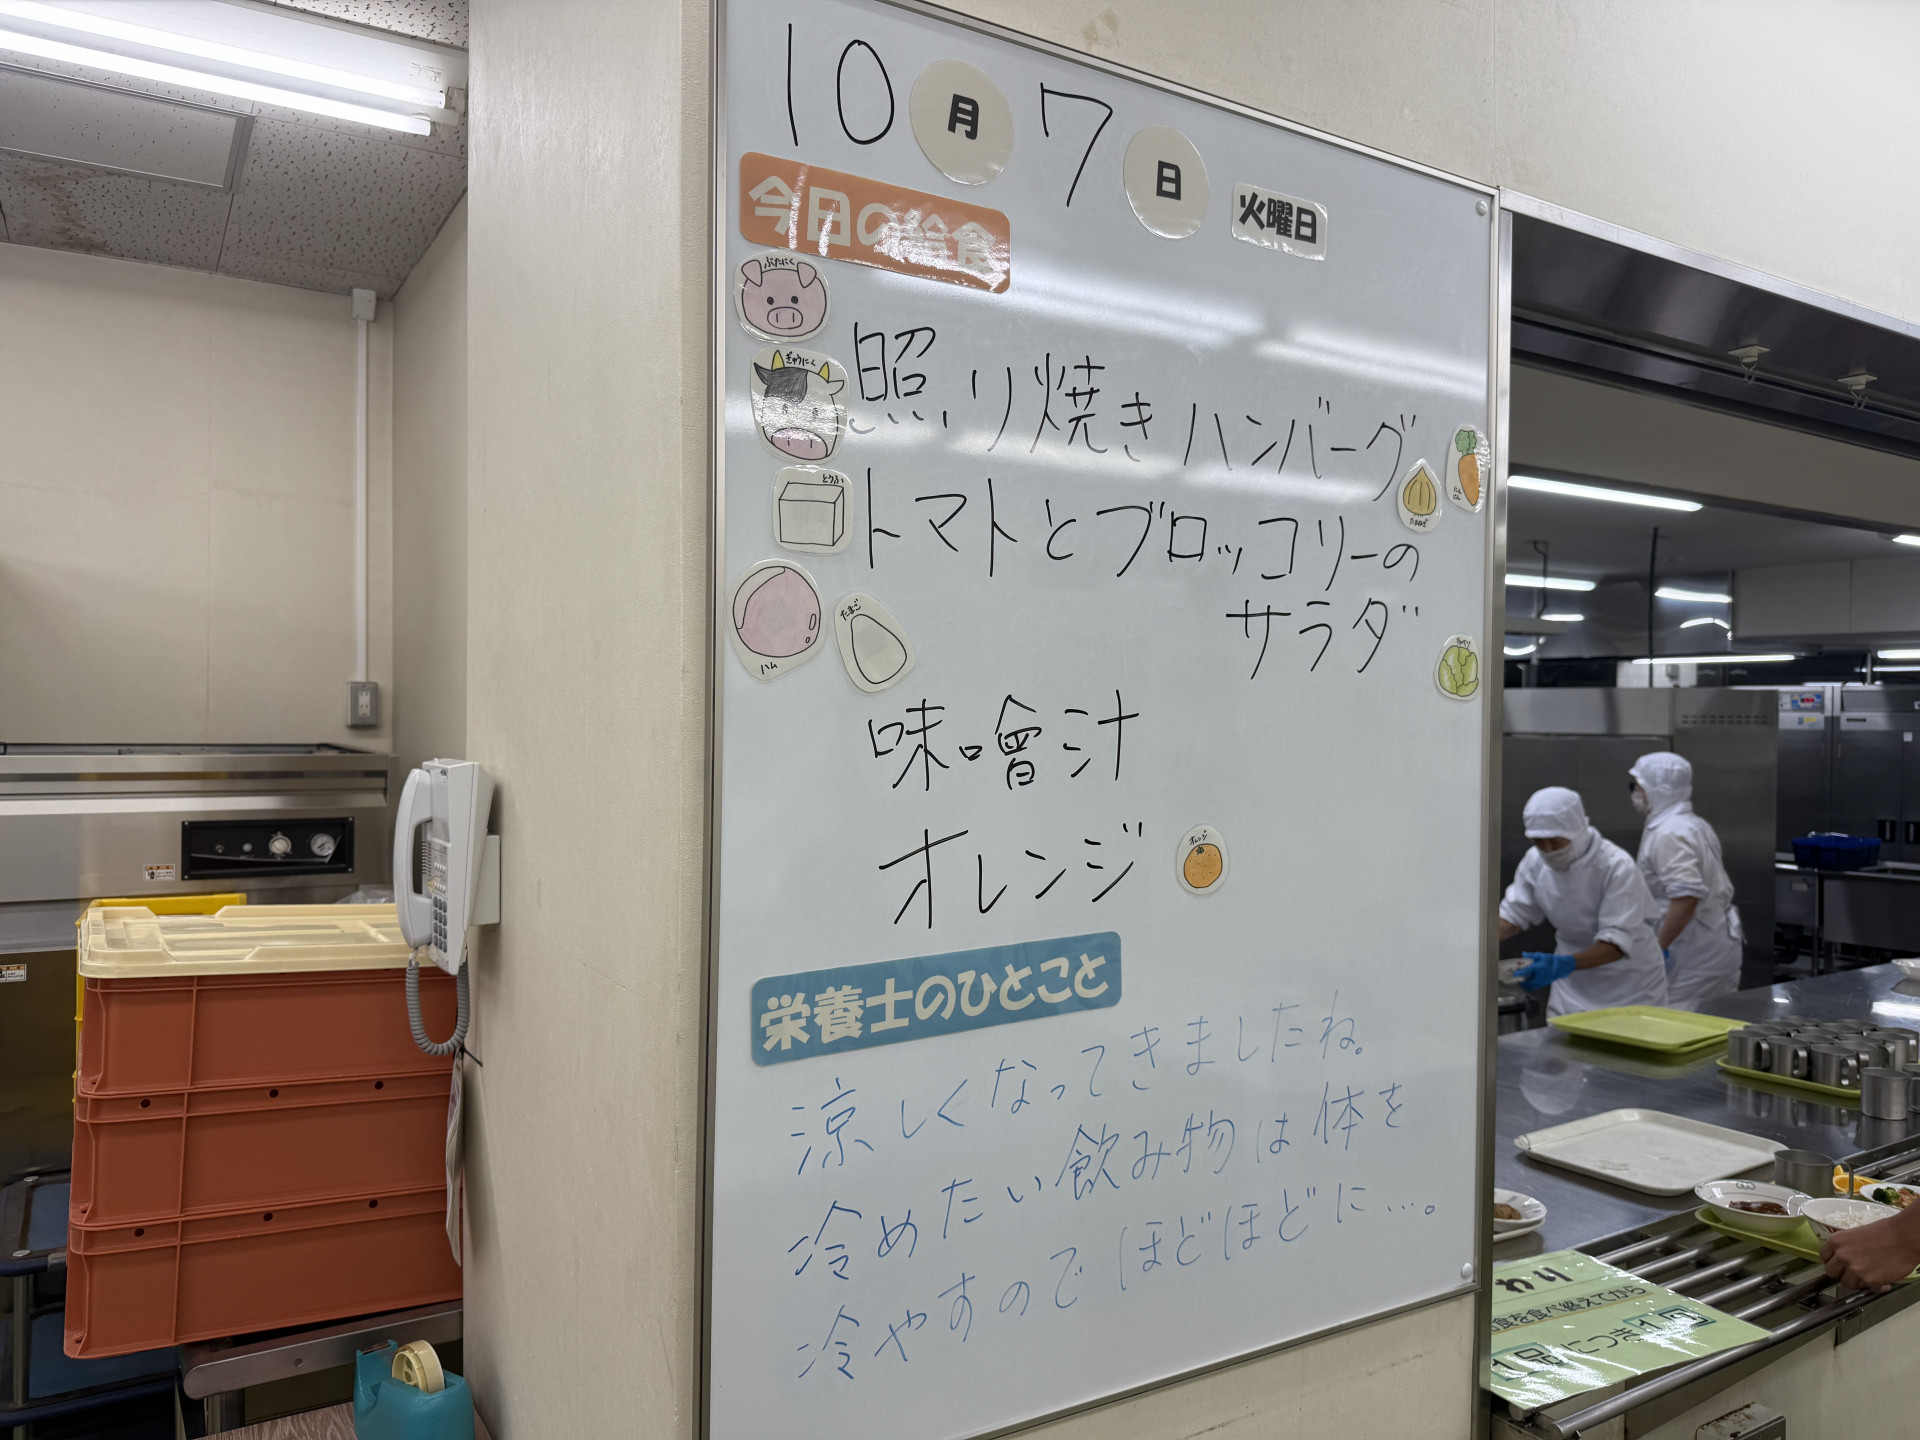 10月7日 火曜日
今日の給食
ぶたにく
ぎゅうにく
照り焼きハンバーグ
にんじん
たまねぎ
とうふ
トマトとブロッコリーの
サラダ
ハム
たまご
キャベツ
味噌汁
オレンジ
オレンジ
栄養士のひとこと
涼しくなってきましたね。
冷めたい飲み物は体を
冷やすのでほどほどに…。
わり
食を食べ終えてから
1品につき1回